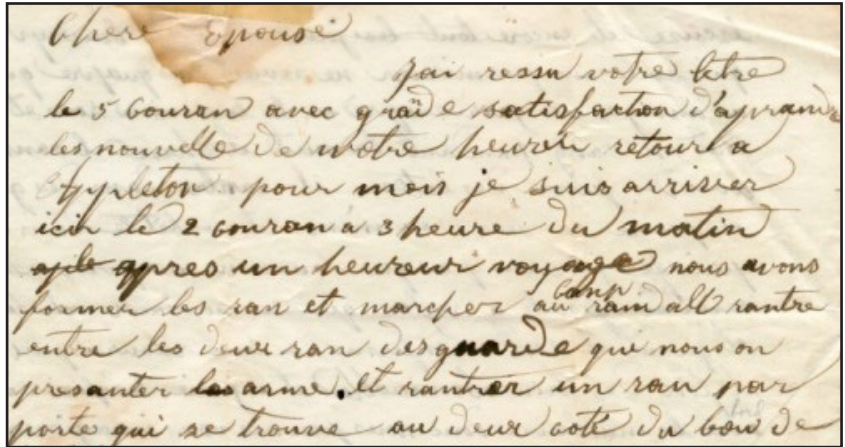 Chere Epouse
Jai ressu votre letre
le 5 Couran avec graïde satisfaction d'aprandre
les nouvelle de wotre heureu retour a
Appleton pour mois je suis arriver
icih le 2 couran a 3 heure du matin
apres un heureur voyage nous avons
former les ran et marcher au Camp randall rantre
entre les deux ran des guarde qui nous on
presanter les arme. et rantrer un ran par
porte qui se trouve au deux coté du bou de